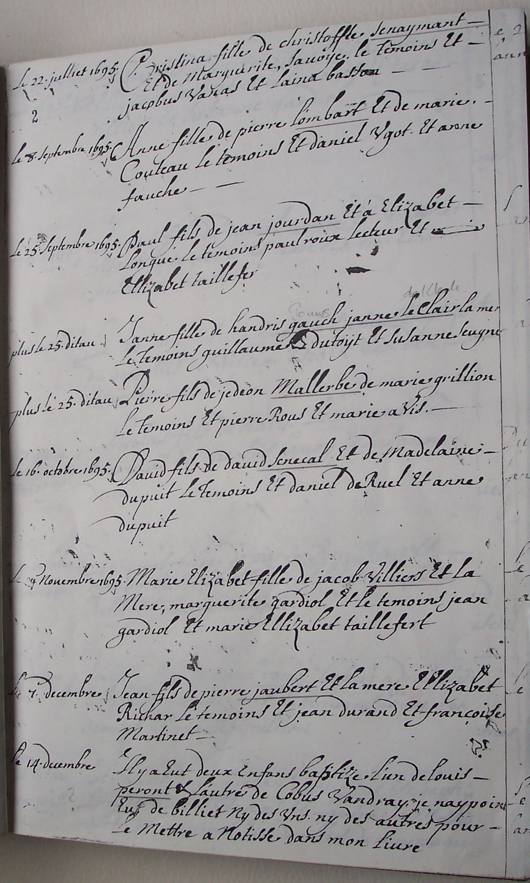 le 22. juillet 1695 Cristina fille de christoffle senaymant
Et de Marguerite, savoye, le temoins Et
jacobus Vanas Et Laina basson
2
le 8. septembre 1695. Anne fille de pierre lombart Et de marie.
Couteau le temoins Et daniel Ygot. Et anne
fauche
le 25. septembre 1695. Paul fils de jean jourdan Et à Elizabet
Longue. le temoins paul roux lecteur Et
Ellizabet taillefer
plus le 25. ditau Janne fille de handris gauch janne le Clair la mer
le temoins guillaume dutoyt Et susanne
plus le 25. ditau Pieire fils de jedeon Mallerbe de marie grillion
le temoins Et pierre Rous Et marie avis.
le 16. octobre 1695. David fils de david senecal Et de Madelaine
dupuit le temoins Et daniel de Ruel Et anne
dupuit
Novembre 1695. Marie Elizabet fille de jacob Villiers Et La
Mere, marguerite gardiol Et le temoins jean
gardiol Et marie Ellizabet taillefert
7. decembre Jean fils de pierre jaubert Et la mere Ellizabet
Richar le temoins Et jean durand Et francoise
Martinet
le 14. decembre Il ya Eut deux Enfans baptize Lun de louis
peront & Lautre de Cobus Vandray, je nay poin
Eus de billiet Ny des Uns. ny des autres pour
le Mettre a Notisse dans mon Livre